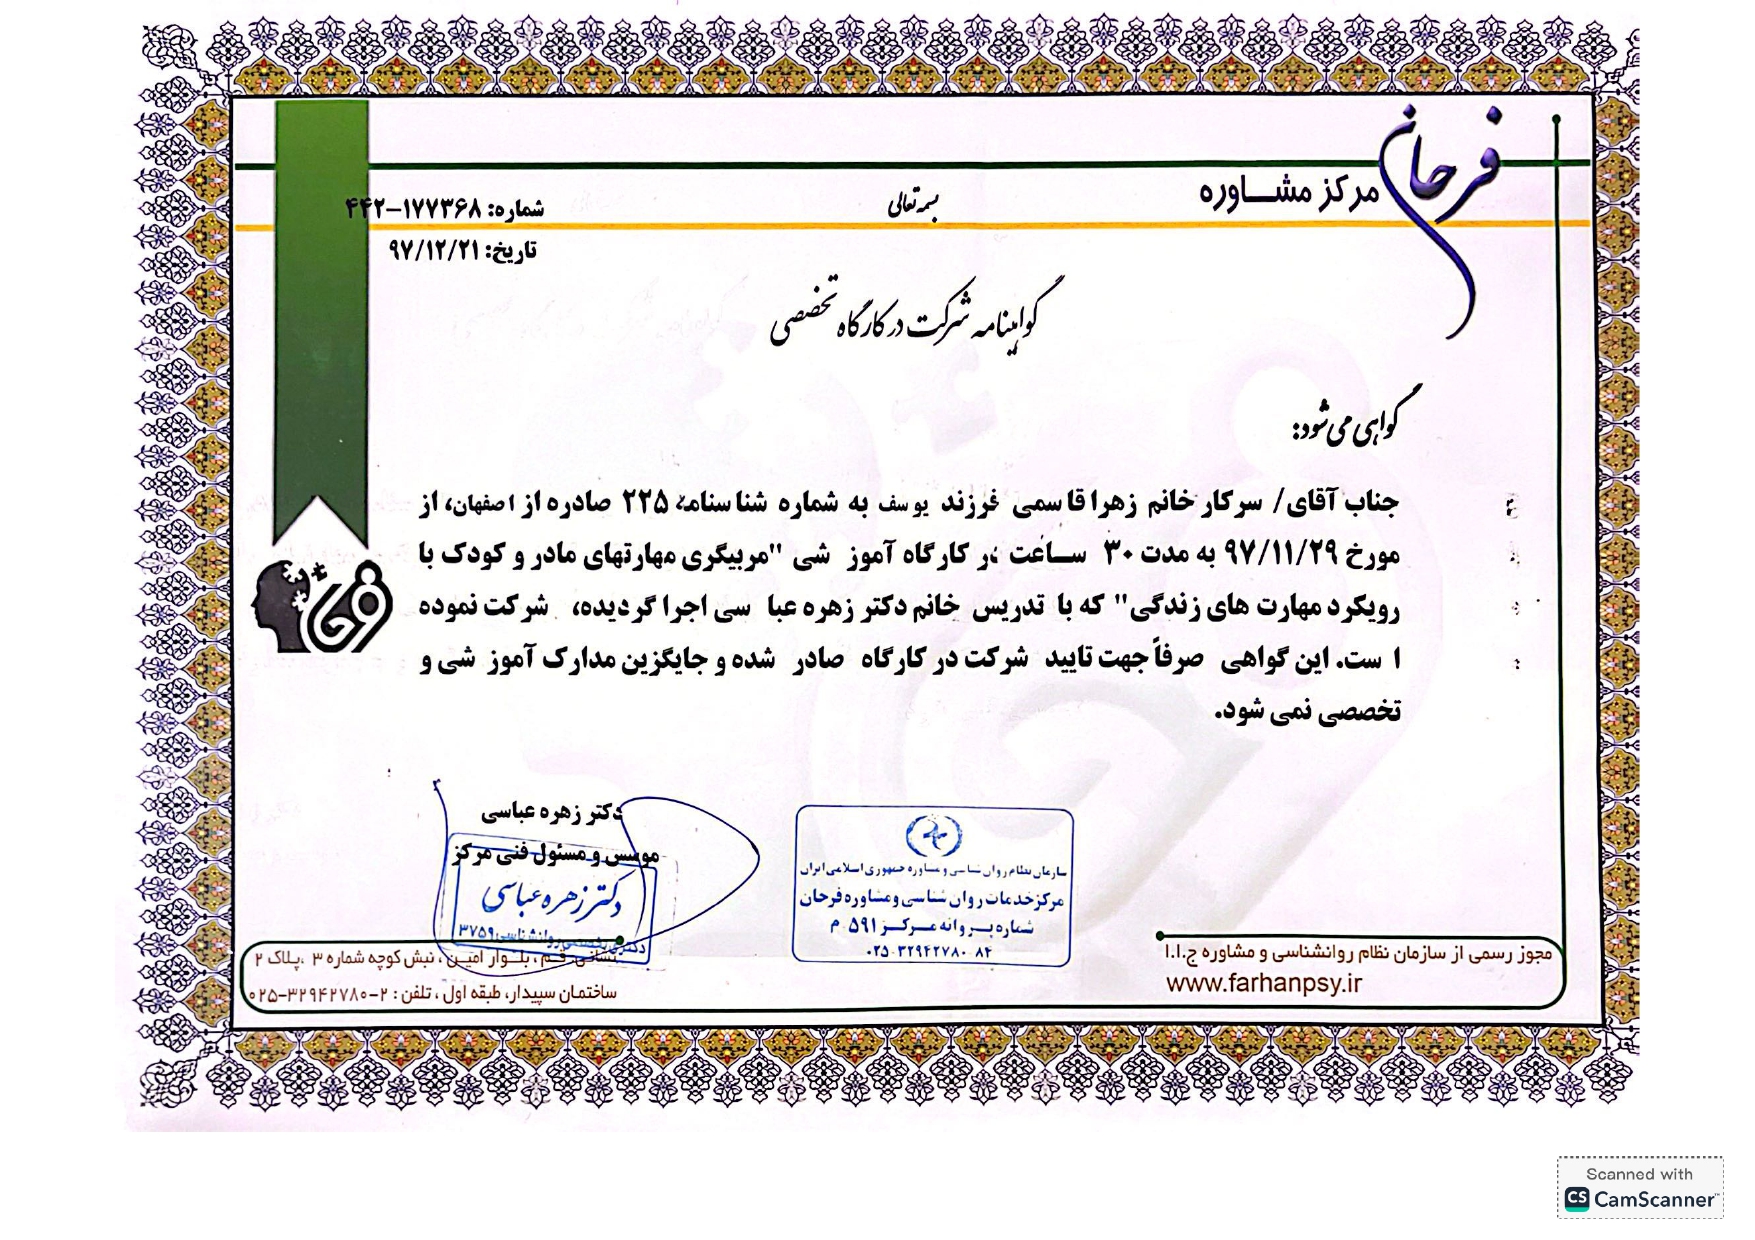 فرحان
مرکز مشــاوره
بسمه تعالی
شماره: ۱۷۷۳۶۸-۴۴۲
تاریخ: ۹۷/۱۲/۲۱
گواهینامه شرکت در کارگاه تخصصی
گواهی می شود:
جناب آقای/ سرکار خانم زهرا قاسمی فرزند یوسف به شماره شناسنامۀ ۲۲۵ صادره از اصفهان، از
مورخ ۹۷/۱۱/۲۹ به مدت ۳۰ ســاعت در کارگاه آموزشی "مربیگری مهارتهای مادر و کودک با
رویکرد مهارت های زندگی" که با تدریس خانم دکتر زهره عباسی اجرا گردیده، شرکت نموده
است. این گواهی صرفاً جهت تایید شرکت در کارگاه صادر شده و جایگزین مدارک آموزشی و
تخصصی نمی شود.
فرحان
دکتر زهره عباسی
موسس و مسئول فنی مرکز
دکتر زهره عباسی
دکتری تخصصی روانشناسی ۳۷۵۹
سازمان نظام روان شناسی و مشاوره جمهوری اسلامی ایران
مرکز خدمات روان شناسی و مشاوره فرحان
شماره پروانه مرکز ۵۹۱ م
۰۲۵-۳۲۹۴۲۷۸۰-۸۲
مجوز رسمی از سازمان نظام روانشناسی و مشاوره ج.ا.ا
www.farhanpsy.ir
نشانی: قم، بلـوار امین، نبش کوچه شماره ۳ ،پلاک ۲
ساختمان سپیدار، طبقه اول ، تلفن : ۲-۰۲۵-۳۲۹۴۲۷۸۰
Scanned with
CS CamScanner